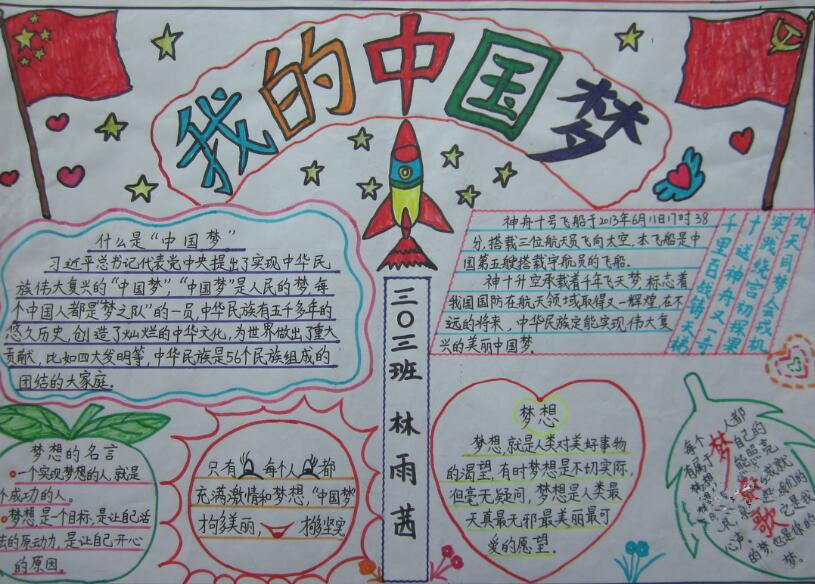 我的中国梦
什么是“中国梦”
习近平总书记代表党中央提出了实现中华民
族伟大复兴的“中国梦”,“中国梦”是人民的梦,每
个中国人都是“梦之队”的一员,中华民族有五千多年的
悠久历史,创造了灿烂的中华文化,为世界做出了重大
贡献,比如四大发明等,中华民族是56个民族组成的
团结的大家庭.
三〇三班 林雨茜
神舟十号飞船于2013年6月11日17时38
分,搭载三位航天员飞向太空.本飞船是中
国第五艘搭载宇航员的飞船.
神十升空承载着千年飞天梦,标志着
我国国防在航天领域取得又一辉煌,在不
远的将来,中华民族定能实现伟大复
兴的美丽中国梦.
九天同梦会战机
实践绕宫初探果
十送神舟又一奇
千里臣战铸天梯
梦想的名言
一个实现梦想的人,就是
个成功的人。
梦想是一个目标,是让自己活
去的原动力,是让自己开心
的原因。
只有每个人都
充满激情和梦想,“中国梦”
才够美丽,才够坚实
梦想
梦想,就是人类对美好事物
的渴望,有时梦想是不切实际,
但毫无疑问,梦想是人类最
天真最无邪最美丽最可
爱的愿望.
每个人都
有属于自己的
梦想
歌